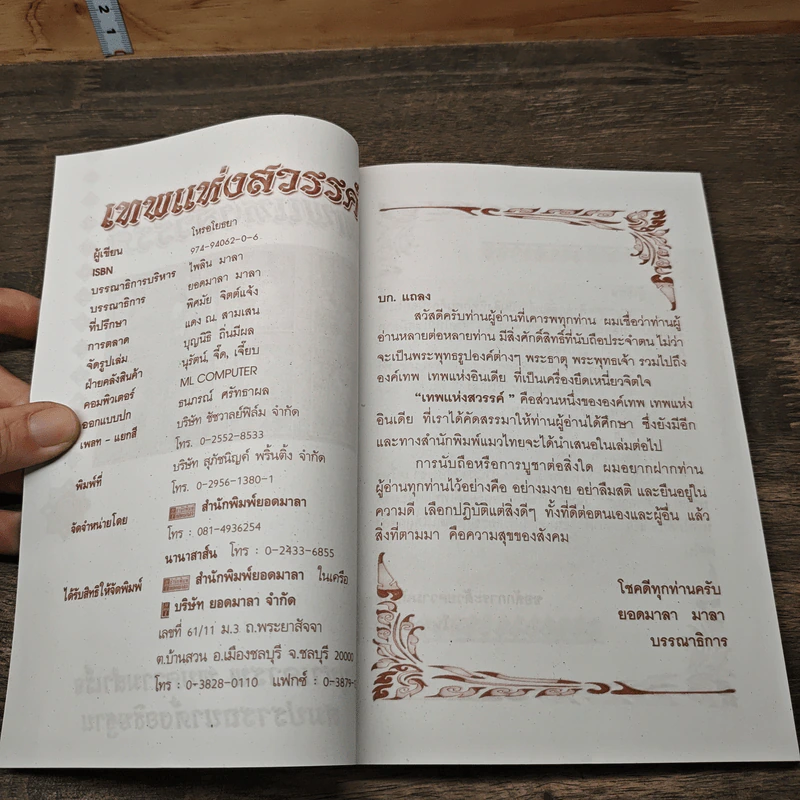 เทพแห่งสวรรค์
ผู้เขียน โหรอโยธยา
ISBN 974-94062-0-6
บรรณาธิการบริหาร ไพลิน มาลา
บรรณาธิการ ยอดมาลา มาลา
ที่ปรึกษา พิศมัย จิตต์แจ้ง
การตลาด แดง ณ สามเสน
จัดรูปเล่ม บุญนิธิ ถิ่นมีผล
ฝ่ายคลังสินค้า นุรัตน์, จี๊ด, เจี๊ยบ
คอมพิวเตอร์ ML COMPUTER
ออกแบบปก ธนภรณ์ ศรัทธาผล
เพลท - แยกสี บริษัท ชัชวาลย์ฟิล์ม จำกัด
โทร. 0-2552-8533
พิมพ์ที่ บริษัท สุภัชนิญค์ พริ้นติ้ง จำกัด
โทร. 0-2956-1380-1
จัดจำหน่ายโดย สำนักพิมพ์ยอดมาลา
โทร : 081-4936254
นานาสาส์น โทร : 0-2433-6855
ได้รับสิทธิให้จัดพิมพ์ สำนักพิมพ์ยอดมาลา ในเครือ
บริษัท ยอดมาลา จำกัด
เลขที่ 61/11 ม.3 ถ.พระยาสัจจา
ต.บ้านสวน อ.เมืองชลบุรี จ.ชลบุรี 20000
โทร : 0-3828-0110 แฟกซ์ : 0-3879-
บก. แถลง
สวัสดีครับท่านผู้อ่านที่เคารพทุกท่าน ผมเชื่อว่าท่านผู้
อ่านหลายต่อหลายท่าน มีสิ่งศักดิ์สิทธิ์ที่นับถือประจำตน ไม่ว่า
จะเป็นพระพุทธรูปองค์ต่างๆ พระธาตุ พระพุทธเจ้า รวมไปถึง
องค์เทพ เทพแห่งอินเดีย ที่เป็นเครื่องยึดเหนี่ยวจิตใจ
“เทพแห่งสวรรค์ ” คือส่วนหนึ่งขององค์เทพ เทพแห่ง
อินเดีย ที่เราได้คัดสรรมาให้ท่านผู้อ่านได้ศึกษา ซึ่งยังมีอีก
และทางสำนักพิมพ์แมวไทยจะได้นำเสนอในเล่มต่อไป
การนับถือหรือการบูชาต่อสิ่งใด ผมอยากฝากท่าน
ผู้อ่านทุกท่านไว้อย่างคือ อย่างมงาย อย่าลืมสติ และยืนอยู่ใน
ความดี เลือกปฏิบัติแต่สิ่งดีๆ ทั้งที่ดีต่อตนเองและผู้อื่น แล้ว
สิ่งที่ตามมา คือความสุขของสังคม
โชคดีทุกท่านครับ
ยอดมาลา มาลา
บรรณาธิการ
2
1